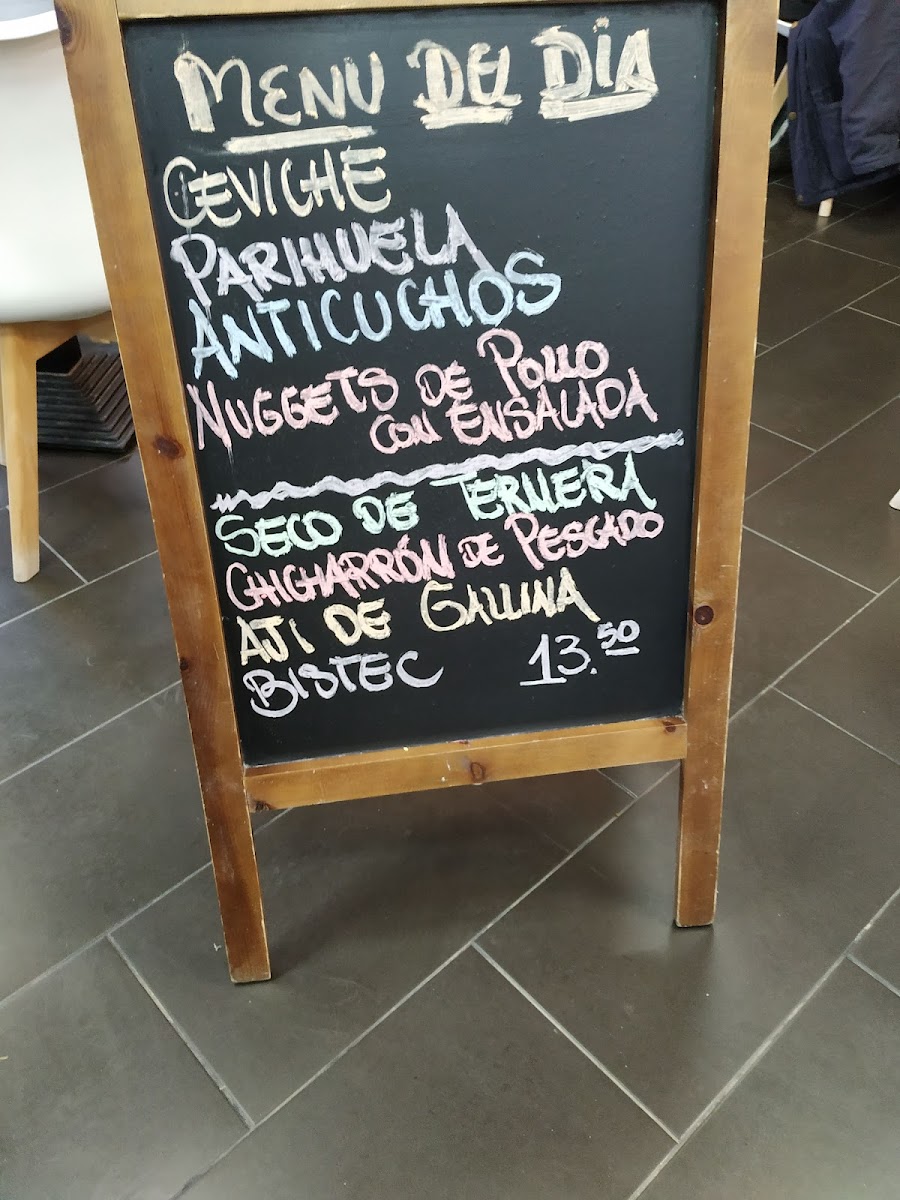 MENU DEL DIA
CEVICHE
PARIHUELA
ANTICUCHOS
NUGGETS DE POLLO
CON ENSALADA
SECO DE TERNERA
CHICHARRÓN DE PESCADO
AJI DE GALLINA
BISTEC 13.50